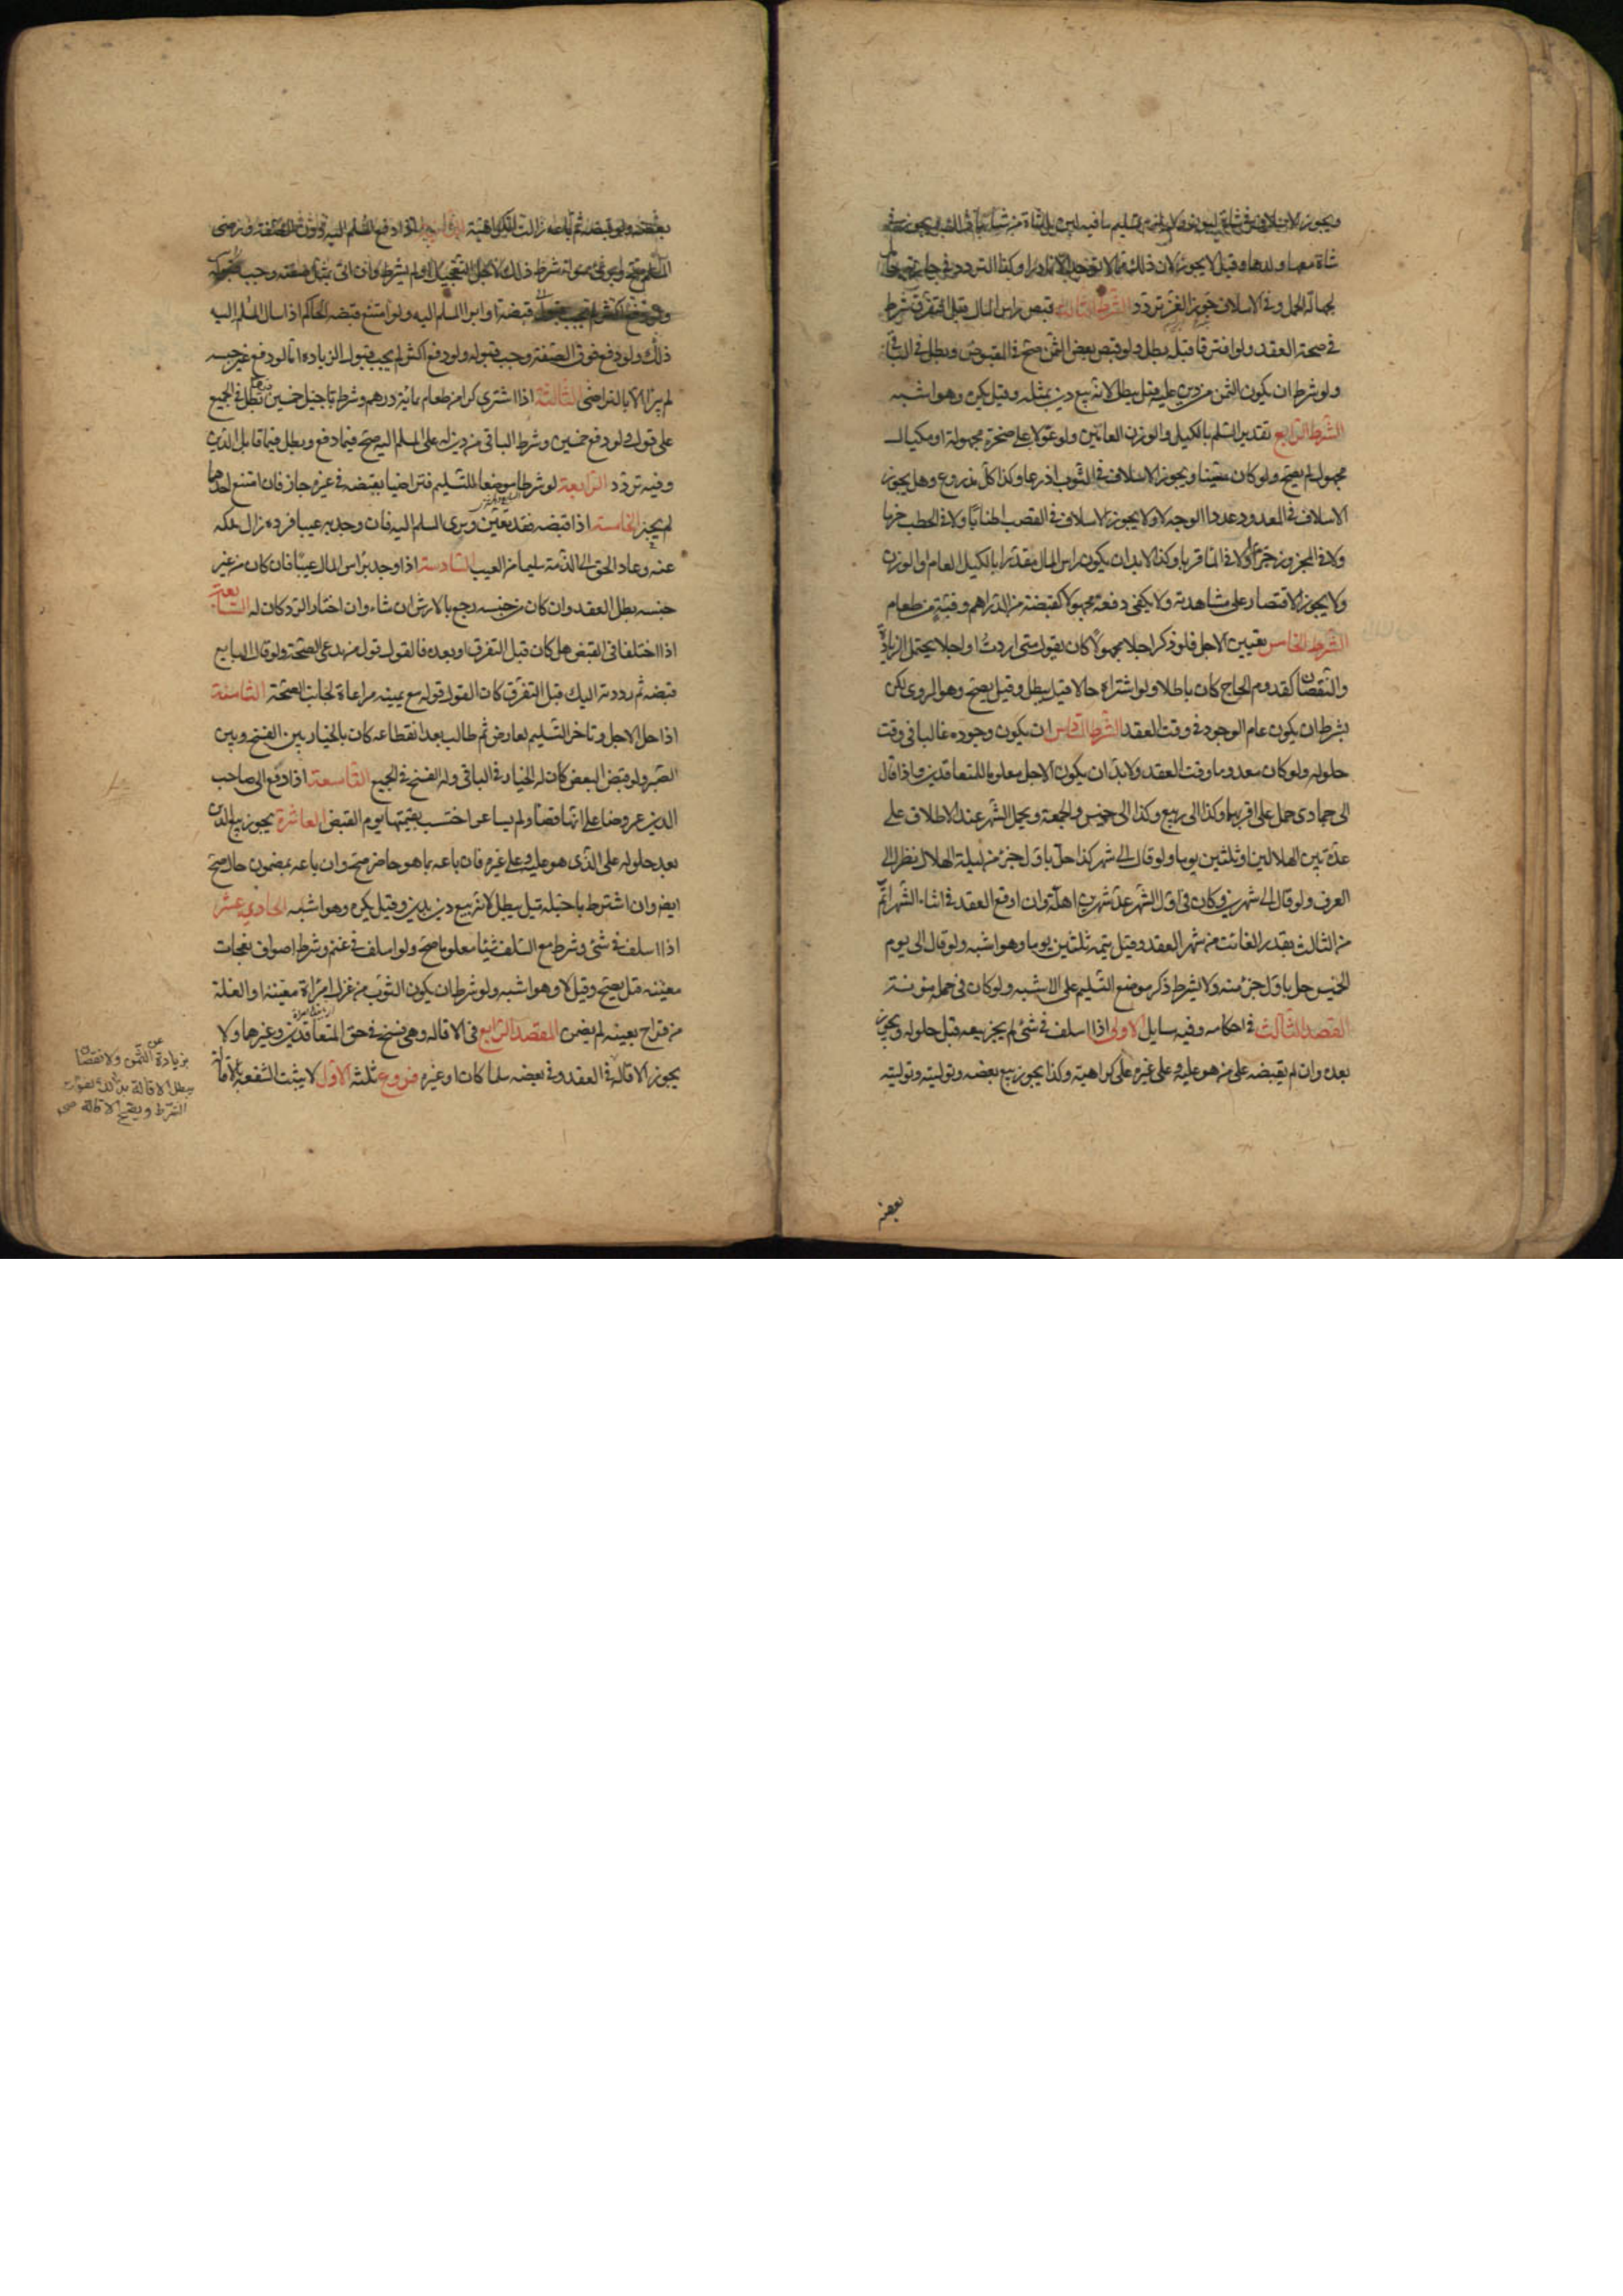 ويجوز الاسلاف في شاة لبون ولا يلزم تسليم ما فيه لبن بل شاة من شأنها ذلك ويجوز في
شاة معها ولدها وقيل لا يجوز لان ذلك مما لا يوجد الا نادرا وكذا التردد في جارية حامل
لجهالة الحمل وفي الاسلاف في جوز القز تردد الشرط الثالث قبض راس المال قبل التفرق شرط
في صحة العقد ولو افترقا قبله بطل ولو قبض بعض الثمن صح في المقبوض وبطل في الباقي
ولو شرط ان يكون الثمن من دين عليه قيل يبطل لانه بيع دين بمثله وقيل يكره وهو اشبه
الشرط الرابع تقدير السلم بالكيل والوزن العامين ولو عولا على صخرة مجهولة او مكيال
مجهول لم يصح ولو كان معينا ويجوز الاسلاف في الثوب اذرعا وكذا كل مذروع وهل يجوز
الاسلاف في المعدود عددا الوجه لا ولا يجوز الاسلاف في القصب اطنانا ولا في الحطب حزما
ولا في المجزوز جزا ولا في الماء قربا وكذا لا بد ان يكون راس المال مقدرا بالكيل العام او الوزن
ولا يجوز الاقتصار على مشاهدته ولا يكفي دفعه مجهولا كقبضة من الدراهم وقبة من طعام
الشرط الخامس تعيين الاجل فلو ذكر اجلا مجهولا كان يقول متى اردت او اجلا يحتمل الزيادة
والنقصان كقدوم الحاج كان باطلا ولو اشتراه حالا قيل يبطل وقيل يصح وهو المروي لكن
بشرط ان يكون عام الوجود في وقت العقد الشرط السادس ان يكون وجوده غالبا في وقت
حلوله ولو كان معدوما وقت العقد ولا بد ان يكون الاجل معلوما للمتعاقدين واذا قال
الى جمادى حمل على اقربهما وكذا الى ربيع وكذا الى خميس والجمعة ويحمل الشهر عند الاطلاق على
عدة بين الهلالين او ثلثين يوما ولو قال الى شهر كذا حل باول جزء من ليلة الهلال نظرا الى
العرف ولو قال الى شهرين وكان في اول الشهر عد شهرين اهلة وان اوقع العقد في اثناء الشهر اتم
من الثالث بقدر الفائت من شهر العقد وقيل يتمه ثلثين يوما وهو اشبه ولو قال الى يوم
الخميس حل باول جزء منه ولا يشترط ذكر موضع التسليم على الاشبه ولو كان في حمله مؤنة
المقصد الثالث في احكامه وفيه مسايل الاولى اذا اسلف في شئ لم يجز بيعه قبل حلوله ويجوز
بعده وان لم يقبضه على من هو عليه وعلى غيره على كراهية وكذا يجوز بيع بعضه وتوليته وتولية
بعضه
بعضه ولو قبضه ثم باعه زالت الكراهية الثانية اذا دفع المسلم اليه دون الصفة ورضي
المسلم صح وبرئ سواء شرط ذلك لاجل التعجيل او لم يشترط وان اتى بمثل صفته وجب
قبضه او ابرا المسلم اليه ولو امتنع قبضه الحاكم اذا سال المسلم اليه
ذلك ولو دفع فوق الصفة وجب قبوله ولو دفع اكثر لم يجب قبول الزيادة اما لو دفع غير جنسه
لم يبرا الا بالتراضي الثالثة اذا اشترى كرا من طعام بمائة درهم وشرط تاجيل خمسين بطل في الجميع
على قول ولو دفع خمسين وشرط الباقي من دين له على المسلم اليه صح فيما دفع وبطل فيما قابل الدين
وفيه تردد الرابعة لو شرطا موضعا للتسليم فتراضيا بقبضه في غيره جاز فان امتنع احدهما
لم يجبر الخامسة اذا قبضه فقد تعين وبرئ المسلم اليه فان وجد به عيبا فرده زال ملكه
عنه وعاد الحق الى الذمة سليما من العيب السادسة اذا وجد براس المال عيبا فان كان من غير
جنسه بطل العقد وان كان من جنسه رجع بالارش ان شاء وان اختار الرد كان له السابعة
اذا اختلفا في القبض هل كان قبل التفرق او بعده فالقول قول من يدعي الصحة ولو قال البايع
قبضته ثم رددته اليك قبل التفرق كان القول قوله مع يمينه مراعاة لجانب الصحة الثامنة
اذا حل الاجل وتاخر التسليم لعارض ثم طالب بعد انقطاعه كان بالخيار بين الفسخ وبين
الصبر ولو قبض البعض كان له الخيار في الباقي وله الفسخ في الجميع التاسعة اذا دفع الى صاحب
الدين عروضا على انها قضاء ولم يساعر احتسب بقيمتها يوم القبض العاشرة يجوز بيع الدين
بعد حلوله على الذي هو عليه وعلى غيره فان باعه بما هو حاضر صح وان باعه بمضمون حال صح
ايضا وان اشترط تاجيله قيل يبطل لانه بيع دين بدين وقيل يكره وهو اشبه الحادي عشر
اذا اسلف في شئ وشرط مع السلف شيئا معلوما صح ولو اسلف في غنم وشرط اصواف نعجات
معينه قيل يصح وقيل لا وهو اشبه ولو شرط ان يكون الثوب من غزل امرأة معينة او الغلة
من قراح بعينه لم يضمن المقصد الرابع في الاقاله وهي فسخ في حق المتعاقدين وغيرهما ولا
يجوز الاقالة في العقد وفي بعضه سلما كان او غيره فروع ثلثه الاول لا يثبت الشفعة بالاقالة
بزيادة عن الثمن ولا نقصان
يبطل الاقالة بذلك لفوات
الشرط ويصح الاقالة